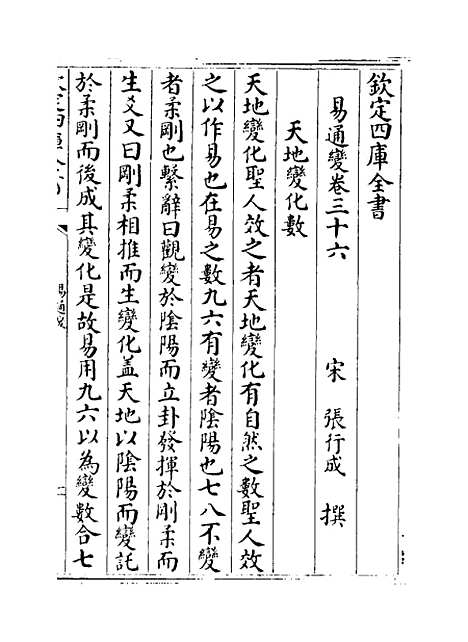 欽定四庫全書
易通變卷三十六　宋　張行成　撰
天地變化數
天地變化聖人效之者天地變化有自然之數聖人效
之以作易也在易之數九六有變者陰陽也七八不變
者柔剛也繫辭曰觀變於陰陽而立卦發揮於剛柔而
生爻又曰剛柔相推而生變化蓋天地以陰陽而變託
於柔剛而後成其變化是故易用九六以為變數合七
易通變